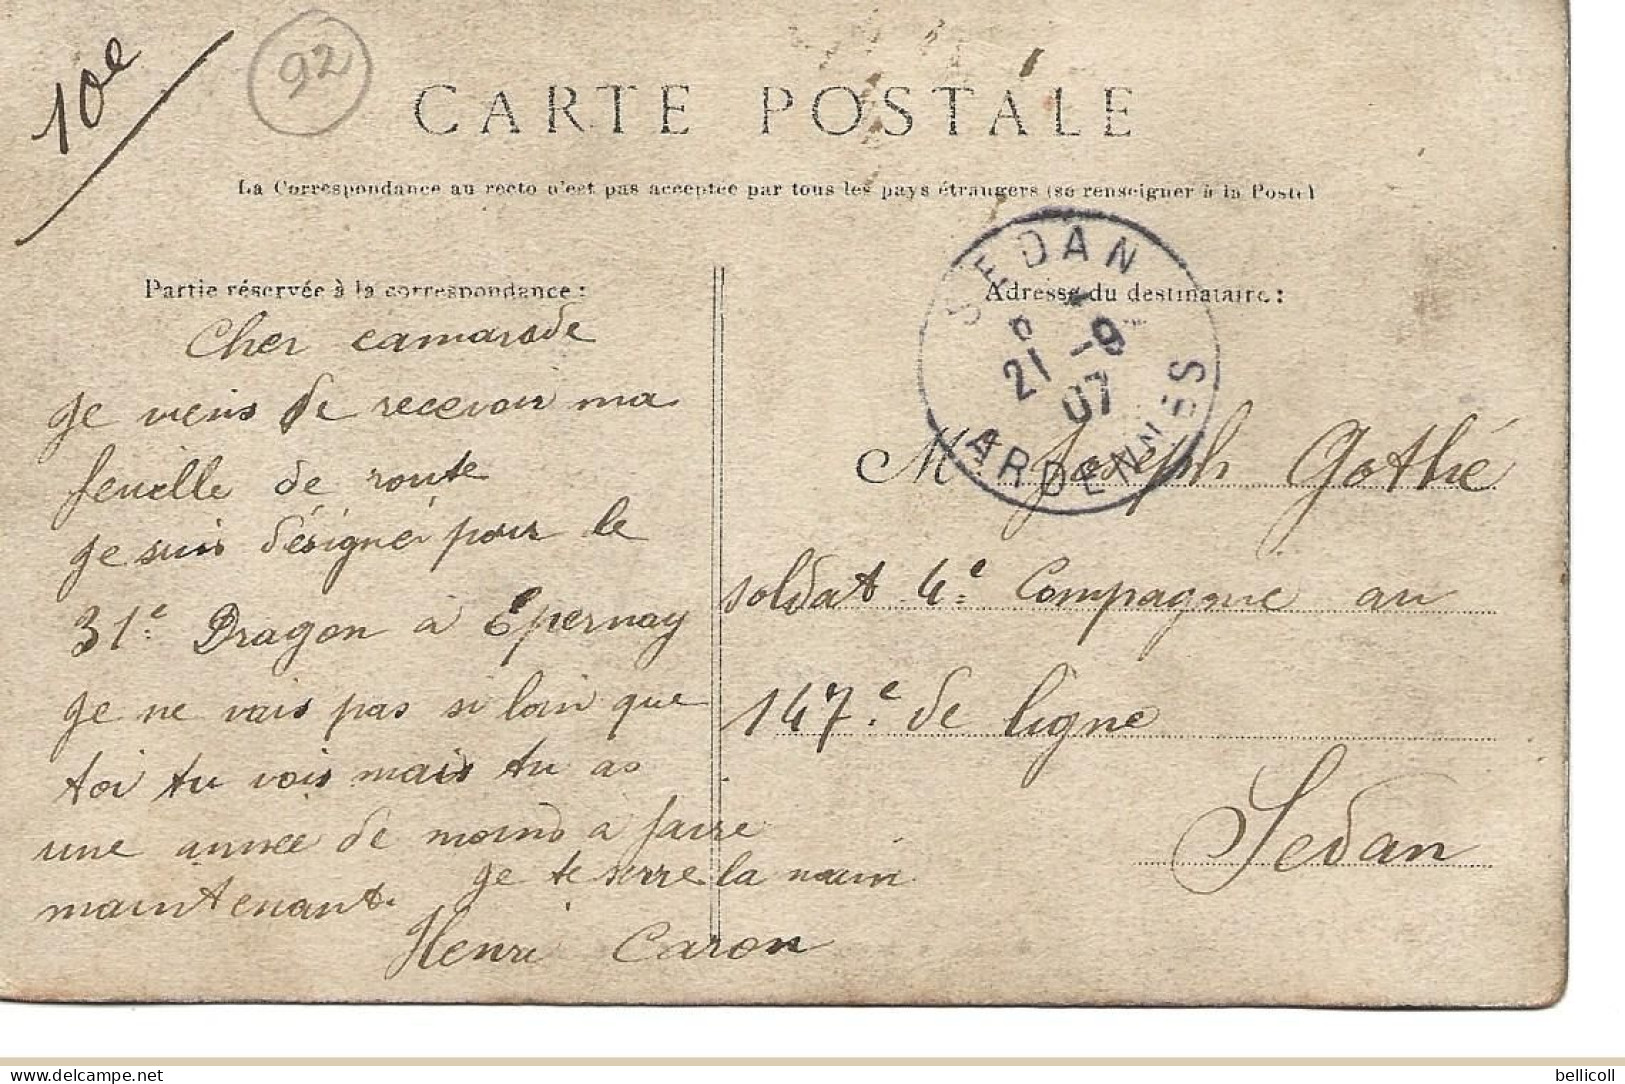 10e
92
CARTE POSTALE
La Correspondance au recto n'est pas acceptée par tous les pays étrangers (se renseigner à la Poste)
SEDAN
21 -9
07
ARDENNES
Partie réservée à la correspondance :
Cher camarade
Je viens de recevoir ma
feuille de route
Je suis désigné pour le
31e Dragon à Epernay
Je ne vais pas si loin que
toi tu vois mais tu as
une année de moins à faire
maintenant. Je te serre la main
Henri Caron
Adresse du destinataire :
M Joseph Gothié
soldat 4e Compagnie au
147e de ligne
Sedan
delcampe.net
bellicoll